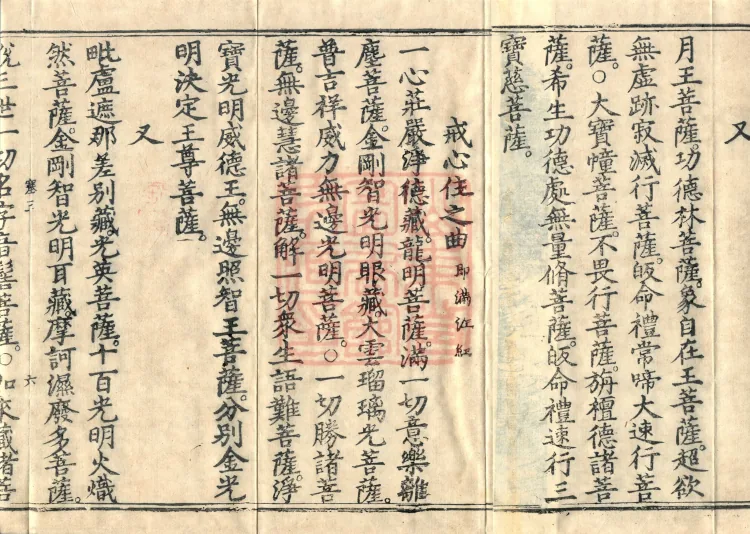 又
月王菩薩。功德林菩薩。象自在王菩薩。超欲
無虛跡寂滅行菩薩。皈命禮常啼大速行菩
薩。○大寶幢菩薩。不畏行菩薩。旃檀德諸菩
薩。希生功德處無量脩菩薩。皈命禮速行三
寶慈菩薩。
戒心住之曲 即滿江紅
一心莊嚴淨德藏。龍明菩薩。滿一切意樂離
塵菩薩。金剛智光明眼藏。大雲瑠璃光菩薩。
普吉祥威力無邊光明菩薩。○一切勝諸菩
薩。無邊慧諸菩薩。解一切眾生語難菩薩。淨
寶光明威德王。無邊照智王菩薩。分別金光
明決定王尊菩薩。
又
毗盧遮那差別藏。光英菩薩。十百光明火熾
然菩薩。金剛智光明耳藏。摩訶濕廢多菩薩。
寒三 六
說三世一切名字音聲菩薩。○如來藏諸菩